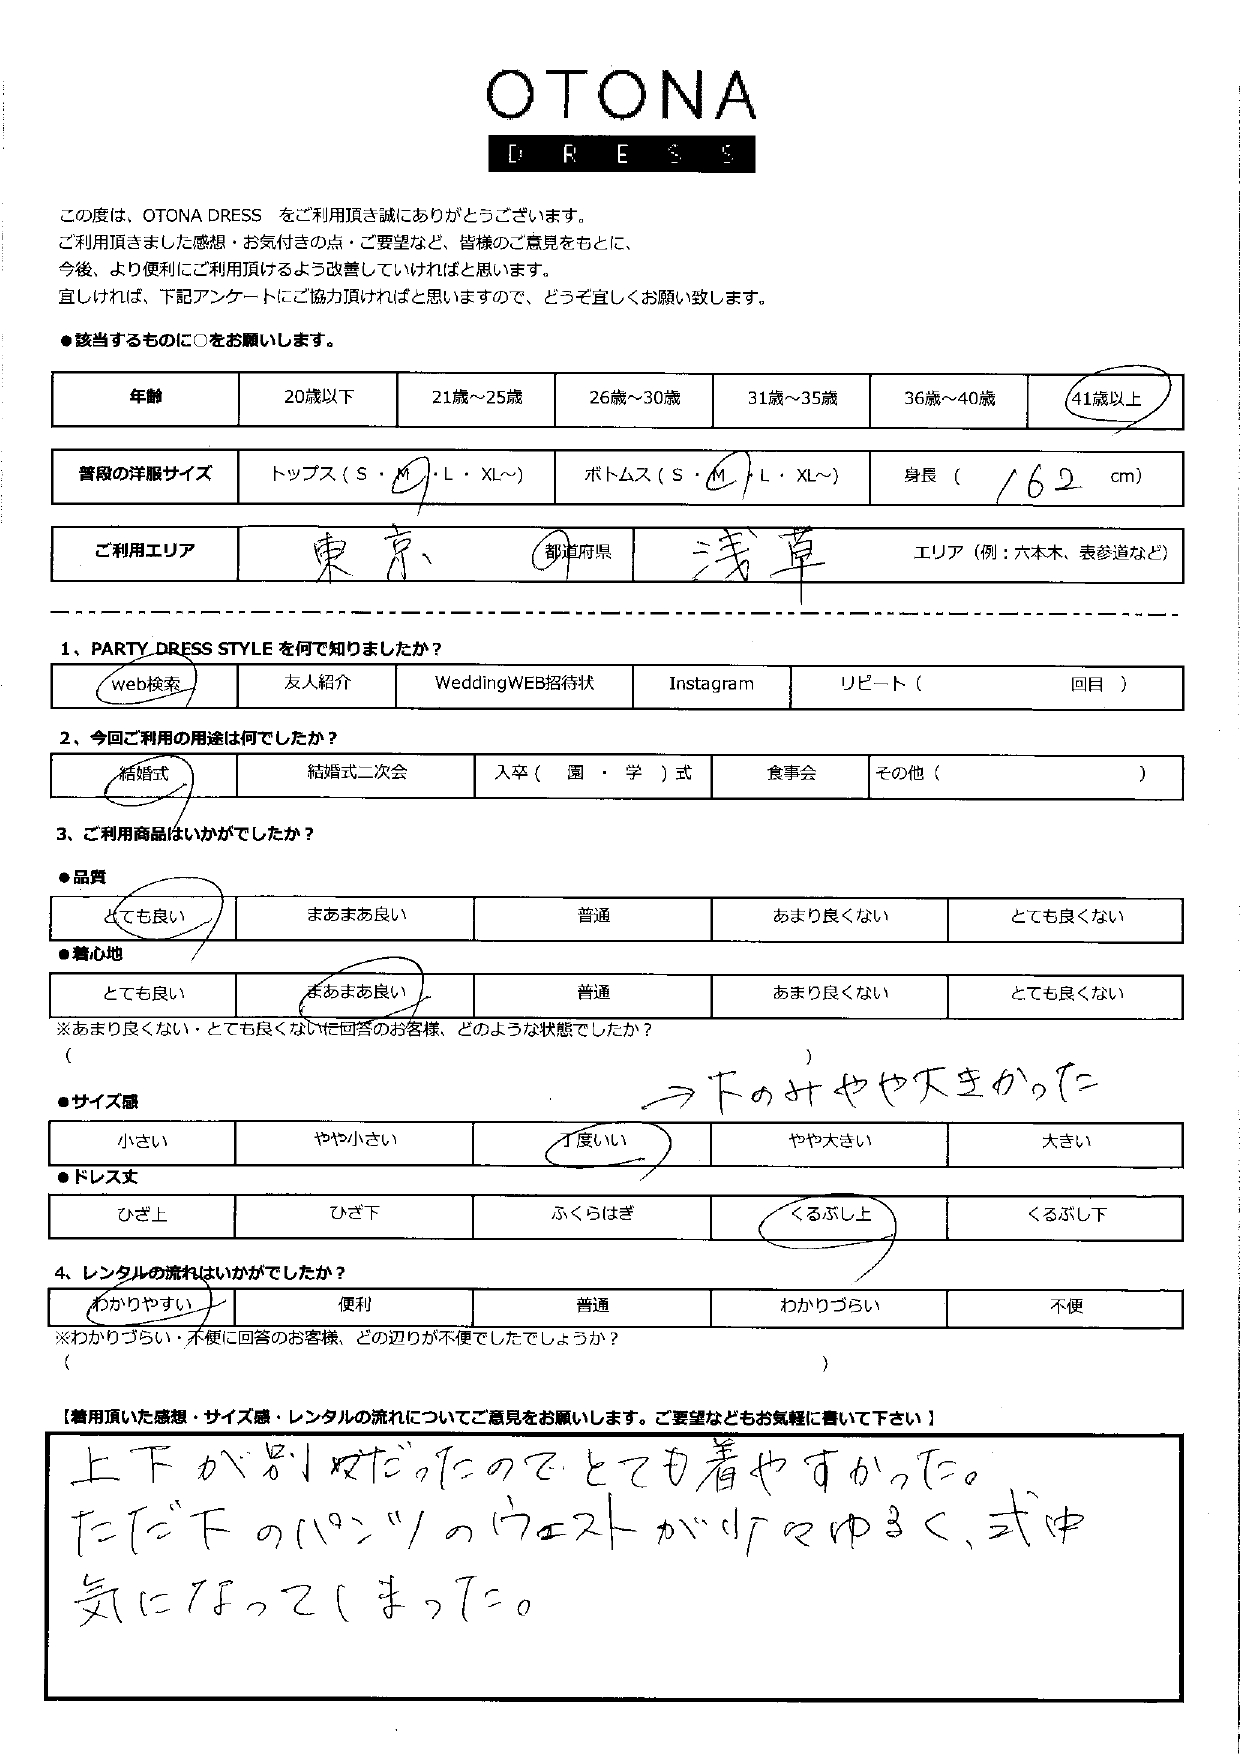 OTONA
DRESS
この度は、OTONA DRESS をご利用頂き誠にありがとうございます。
ご利用頂きました感想・お気付きの点・ご要望など、皆様のご意見をもとに、
今後、より便利にご利用頂けるよう改善していければと思います。
宜しければ、下記アンケートにご協力頂ければと思いますので、どうぞ宜しくお願い致します。
●該当するものに○をお願いします。
年齢 20歳以下 21歳～25歳 26歳～30歳 31歳～35歳 36歳～40歳 41歳以上
普段の洋服サイズ トップス ( S ・ M ・ L ・ XL～) ボトムス ( S ・ M ・ L ・ XL～) 身長 ( 162 cm)
ご利用エリア 東京 都道府県 浅草 エリア（例：六本木、表参道など）
1、PARTY DRESS STYLE を何で知りましたか？
web検索 友人紹介 WeddingWEB招待状 Instagram リピート ( 回目 )
2、今回ご利用の用途は何でしたか？
結婚式 結婚式二次会 入卒 ( 園 ・ 学 ) 式 食事会 その他 ( )
3、ご利用商品はいかがでしたか？
●品質
とても良い まあまあ良い 普通 あまり良くない とても良くない
●着心地
とても良い まあまあ良い 普通 あまり良くない とても良くない
※あまり良くない・とても良くないに回答のお客様、どのような状態でしたか？
( )
→下のみやや大きかった
●サイズ感
小さい やや小さい 丁度いい やや大きい 大きい
●ドレス丈
ひざ上 ひざ下 ふくらはぎ くるぶし上 くるぶし下
4、レンタルの流れはいかがでしたか？
わかりやすい 便利 普通 わかりづらい 不便
※わかりづらい・不便に回答のお客様、どの辺りが不便でしたでしょうか？
( )
【着用頂いた感想・サイズ感・レンタルの流れについてご意見をお願いします。ご要望などもお気軽に書いて下さい】
上下が別々だったのでとても着やすかった。
ただ下のパンツのウェストが少々ゆるく、式中
気になってしまった。